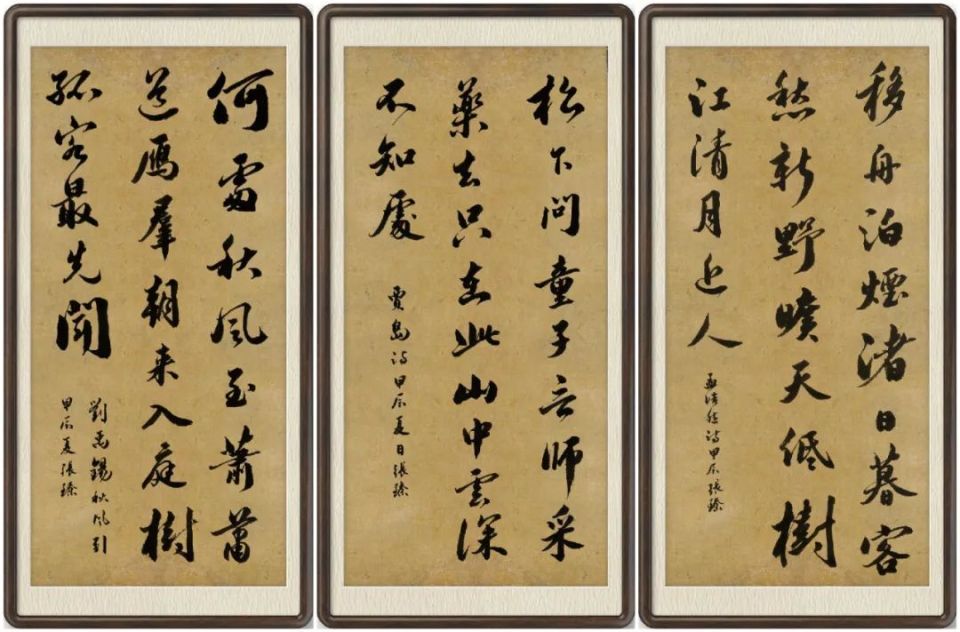 移舟泊煙渚日暮客
愁新野曠天低樹
江清月近人
孟浩然詩甲辰張臻
松下問童子言師采
藥去只在此山中雲深
不知處
賈島詩甲辰夏日張臻
何處秋風至蕭蕭
送鴈羣朝来入庭樹
孤客最先聞
劉禹錫秋風引
甲辰夏張臻